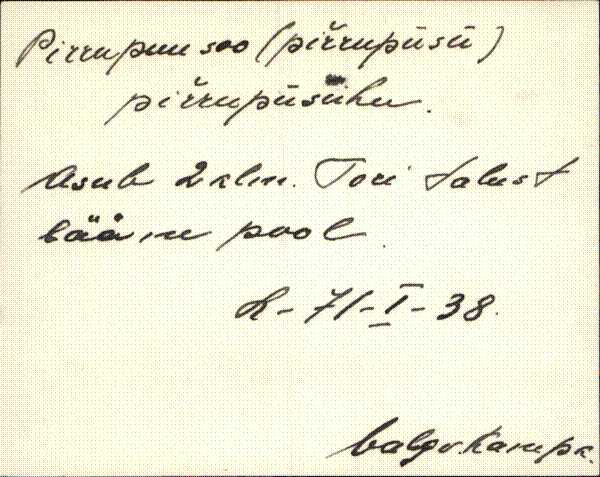 Pirrupuu soo (piřrupüsü)
piřrupüsühu.
Asub 2 klm. Tori talust
lääne pool.
L-71-I-38.
Valgv. Karepk.